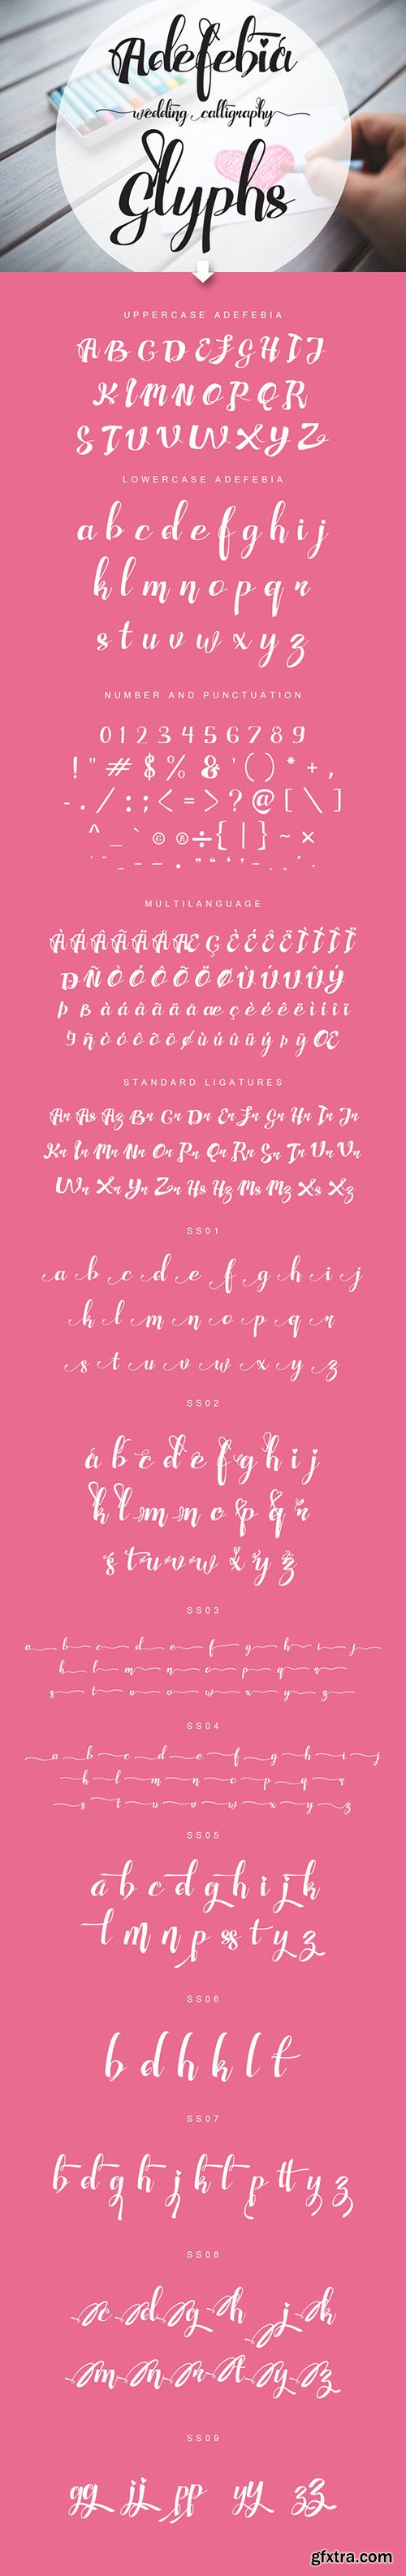 Adefebia
wedding calligraphy
Glyphs
UPPERCASE ADEFEBIA
A B C D E F G H I J
K L M N O P Q R
S T U V W X Y Z
LOWERCASE ADEFEBIA
a b c d e f g h i j
k l m n o p q r
s t u v w x y z
NUMBER AND PUNCTUATION
0 1 2 3 4 5 6 7 8 9
! " # $ % & ' ( ) * + ,
- . / : ; < = > ? @ [ \ ]
^ _ ` © ® ÷ { | } ~ ×
MULTILANGUAGE
À Á Â Ã Ä Å Æ Ç È É Ê Ë Ì Í Î Ï
Ð Ñ Ò Ó Ô Õ Ö Ø Ù Ú Û Ü Ý
Þ ß à á â ã ä å æ ç è é ê ë ì í î ï
ñ ò ó ô õ ö ø ù ú û ü ý þ ÿ Œ
STANDARD LIGATURES
Ar As Az Br Cr Dr Er Fr Gr Hr Ir Jr
Kr Lr Mr Nr Or Pr Qr Rr Sr Tr Ur Vr
Wr Xr Yr Zr Hs Hz Ms Mz Xs Xz
SS01
a b c d e f g h i j
k l m n o p q r
s t u v w x y z
SS02
a b c d e f g h i j
k l m n o p q r
s t u v w x y z
SS03
a b c d e f g h i j
k l m n o p q r
s t u v w x y z
SS04
a b c d e f g h i j
k l m n o p q r
s t u v w x y z
SS05
a b c d g h i j k
l m n p ss t y z
SS06
b d h k l t
SS07
b d g h j k l p tt y z
SS08
c d g h j k
m n r t y z
SS09
gg jj pp yy zz
gfxtra.com